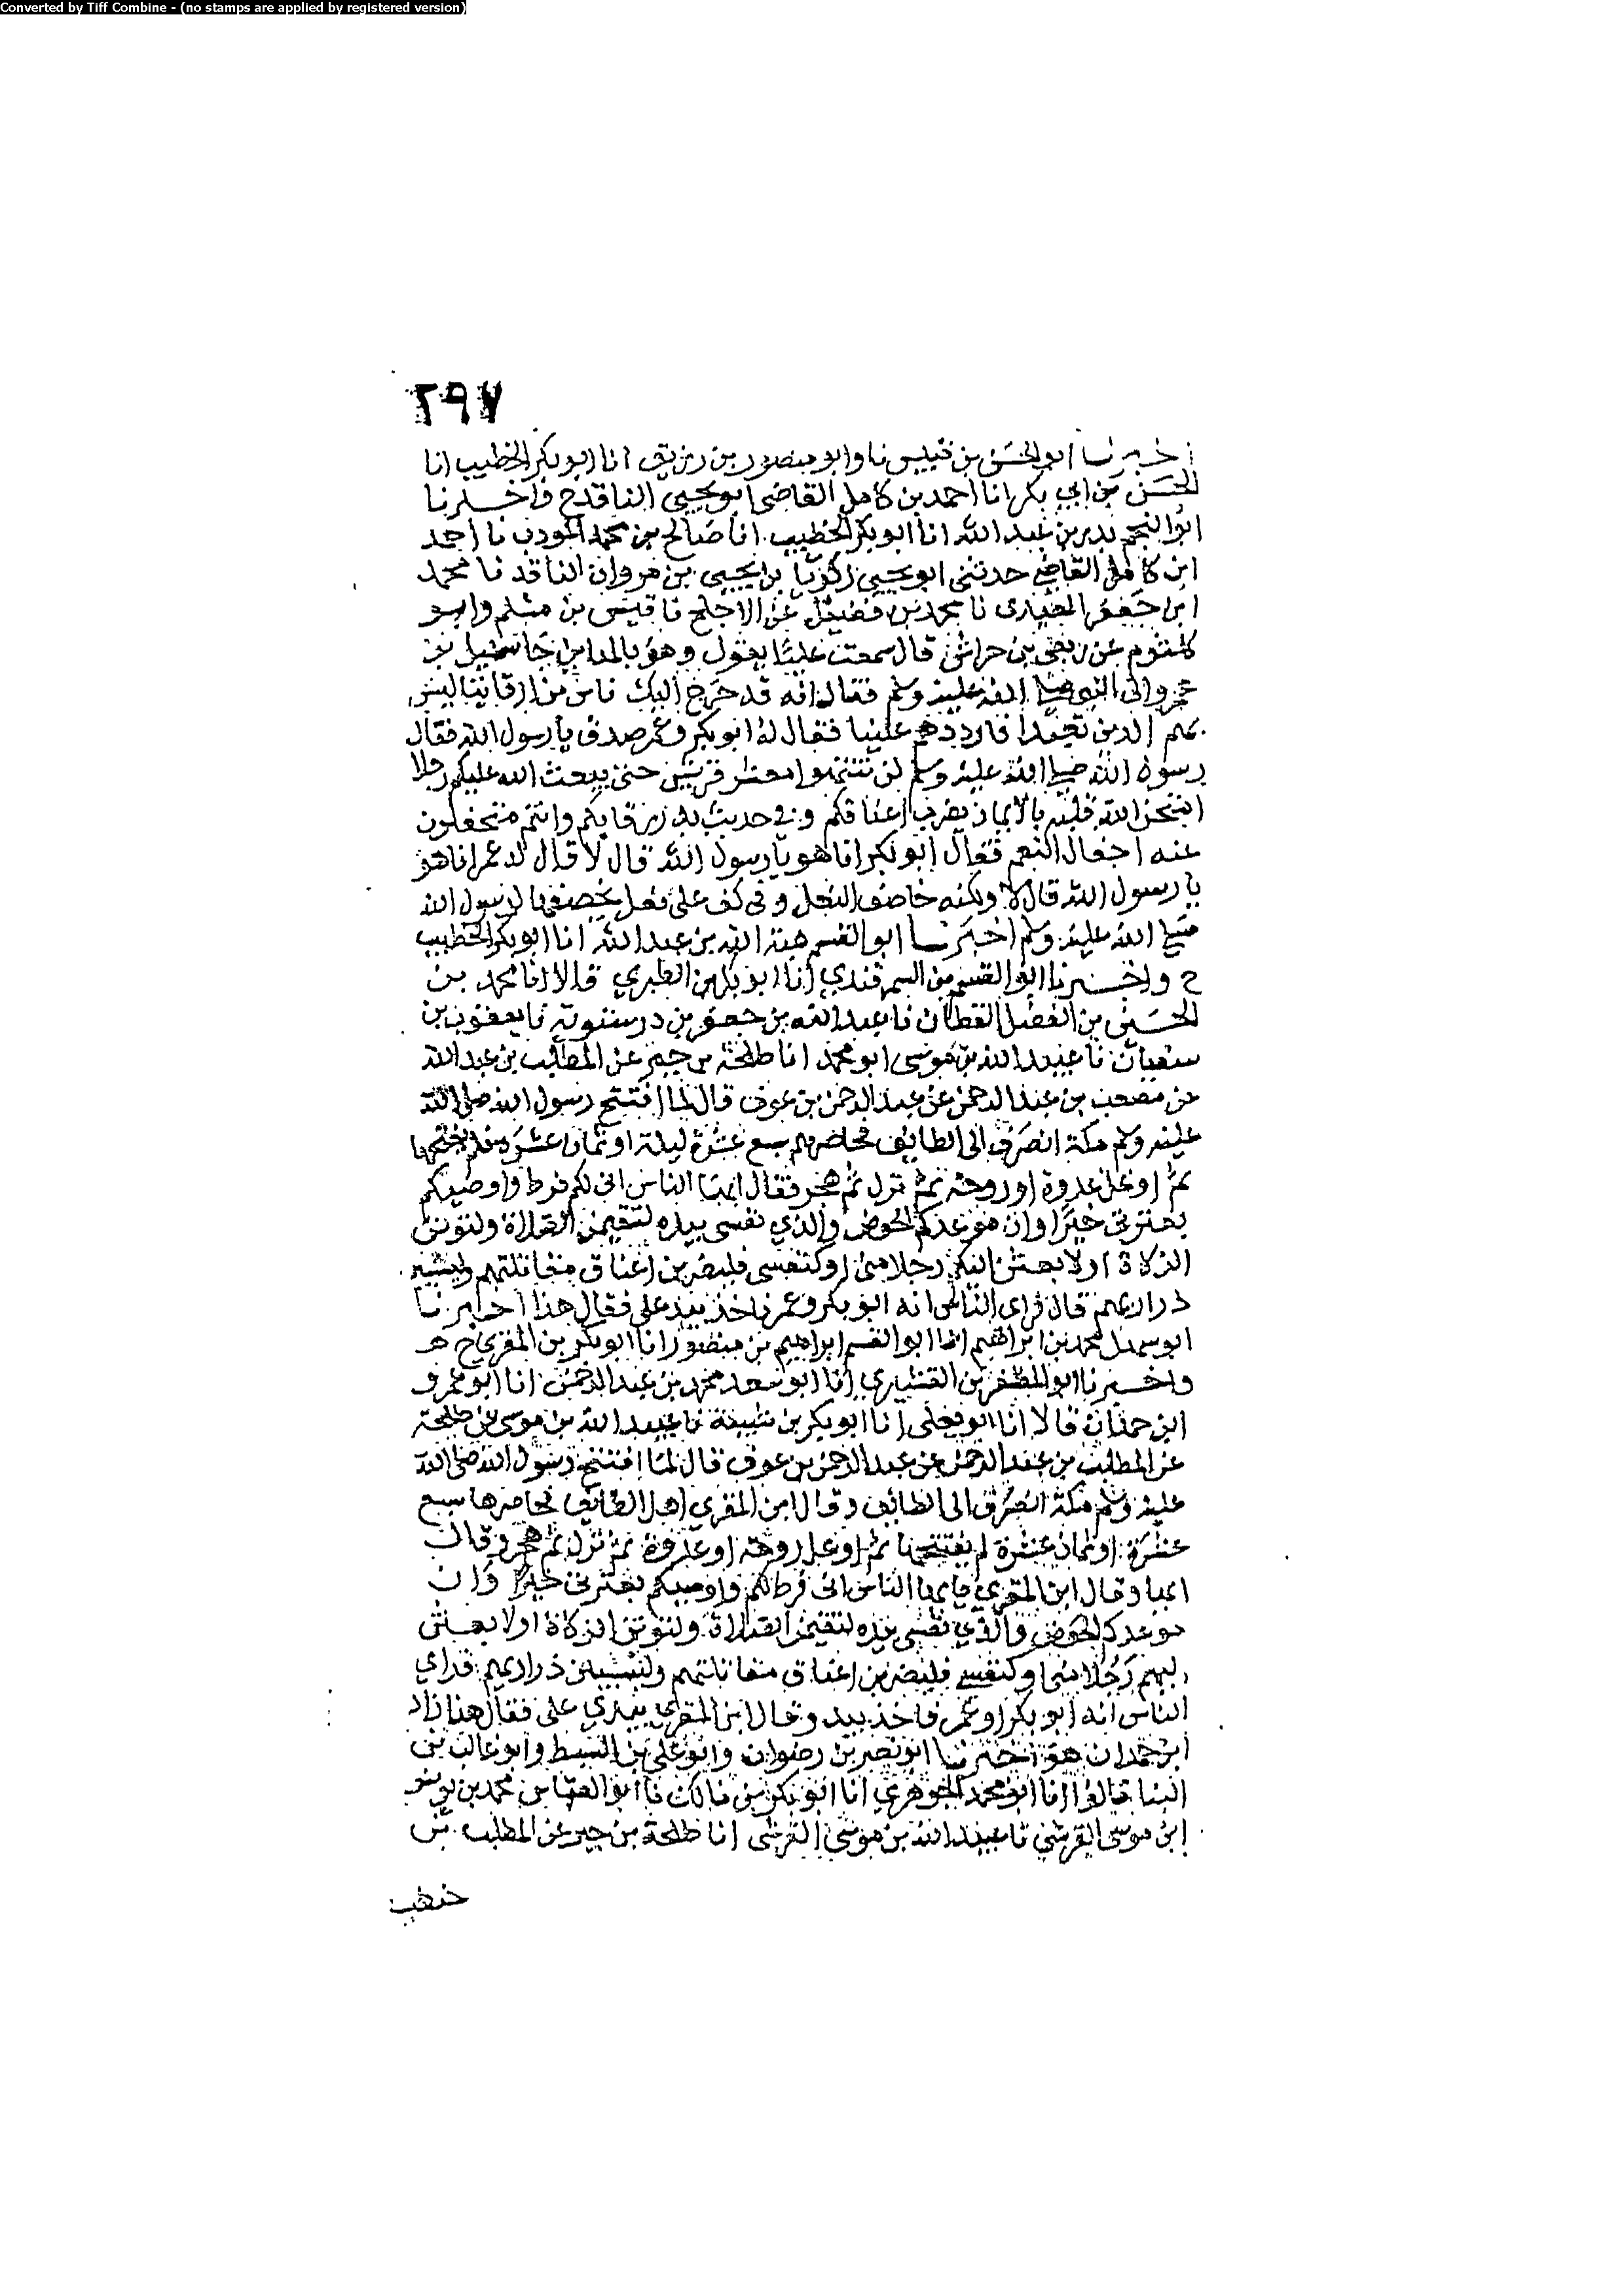 Converted by Tiff Combine - (no stamps are applied by registered version)
٢٩٧
اخبرنا ابو الحسن بن قبيس نا وابو منصور بن زريق انا ابو بكر الخطيب انا
الحسن بن ابي بكر انا احمد بن كامل القاضي ابو يحيى الناقد ح واخبرنا
ابو النجم بدر بن عبد الله انا ابو بكر الخطيب انا صالح بن محمد المودب نا احمد
ابن كامل القاضي حدثني ابو يحيى زكريا بن يحيى بن مروان الناقد نا محمد
ابن جعفر نا محمد بن فضيل عن الاجلح نا قيس بن مسلم وابو
كلثوم عن ربعي بن حراش قال سمعت عليا يقول وهو بالمداين جا سهيل بن
عمرو الى النبي صلى الله عليه وسلم فقال انه قد خرج اليك ناس من ارقاينا ليس
بهم الدين تعبدا فارددهم علينا فقال له ابو بكر وعمر صدق يا رسول الله فقال
رسول الله صلى الله عليه وسلم لن تنتهوا معشر قريش حتى يبعث الله عليكم رجلا
امتحن الله قلبه بالايمان يضرب اعناقكم وفي حديث بدر رقابكم وانتم متجفلون
عنه اجفال النعم فقال ابو بكر انا هو يا رسول الله قال لا قال له عمر انا هو
يا رسول الله قال لا ولكنه خاصف النعل وفي كف علي نعل يخصفها لرسول الله
صلى الله عليه وسلم اخبرنا ابو القسم هبة الله بن عبد الله انا ابو بكر الخطيب
ح واخبرنا ابو القسم بن السمرقندي انا ابو بكر بن الطبري قالا انا محمد بن
الحسين بن الفضل القطان نا عبد الله بن جعفر بن درستويه نا يعقوب بن
سفيان نا عبيد الله بن موسى ابو محمد انا طلحة بن جبر عن المطلب بن عبد الله
عن مصعب بن عبد الرحمن عن عبد الرحمن بن عوف قال لما افتتح رسول الله صلى الله
عليه وسلم مكة انصرف الى الطايف فحاصرهم سبع عشرة ليلة او ثمان عشرة فلم يفتحها
ثم اوغل غدوة او روحة ثم نزل ثم هجر فقال ايها الناس اني لكم فرط واوصيكم
بعترتي خيرا وان موعدكم الحوض والذي نفسي بيده لتقيمن الصلاة ولتوتن
الزكاة او لابعثن اليكم رجلا مني او كنفسي فليضربن اعناق مقاتلتهم وليسبين
ذراريهم قال فراى الناس انه ابو بكر وعمر فاخذ بيد علي فقال هذا اخبرنا
ابو سهل محمد بن ابراهيم انا ابو القسم ابراهيم بن منصور انا ابو بكر بن المقري ح
واخبرنا ابو المظفر بن القشيري انا ابو سعد محمد بن عبد الرحمن انا ابو عمرو
ابن حمدان قالا انا ابو يعلى انا ابو بكر بن شيبة نا عبيد الله بن موسى عن طلحة
عن المطلب بن عبد الرحمن عن عبد الرحمن بن عوف قال لما افتتح رسول الله صلى الله
عليه وسلم مكة انصرف الى الطايف وقال ابن المقري اهل الطايف فحاصرها سبع
عشرة او ثمان عشرة لم يفتتحها ثم اوغل روحة او غدوة ثم نزل ثم هجر فقال
ايها وقال ابن المقري يا ايها الناس اني فرط لكم واوصيكم بعترتي خيرا وان
موعدكم الحوض والذي نفسي بيده لتقيمن الصلاة ولتوتن الزكاة او لابعثن
اليهم رجلا مني او كنفسي فليضربن اعناق مقاتلتهم وليسبين ذراريهم فراى
الناس انه ابو بكر او عمر فاخذ بيد وقال ابن المقري بيدي علي فقال هذا زاد
ابن حمدان هو اخبرنا ابو نصر بن رضوان وابو علي بن السبط وابو غالب بن
البنا قالوا انا ابو محمد الجوهري انا ابو بكر بن مالك نا ابو العباس محمد بن يونس
ابن موسى القرشي نا عبيد الله بن موسى القرشي انا طلحة بن جبر عن المطلب بن